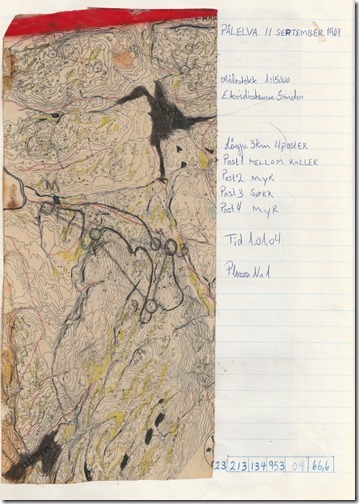 PÅLELVA 11 SEPTEMBER 1969
Målestokk 1:15000
Ekvidistanse 5 meter
Lengde 3 km 4 poster
Post 1 MELLOM KOLLER
Post 2 MYR
Post 3 SØKK
Post 4 MYR
Tid 1.01.04
Plass Nr 1
23 213 134 953 04 66,6